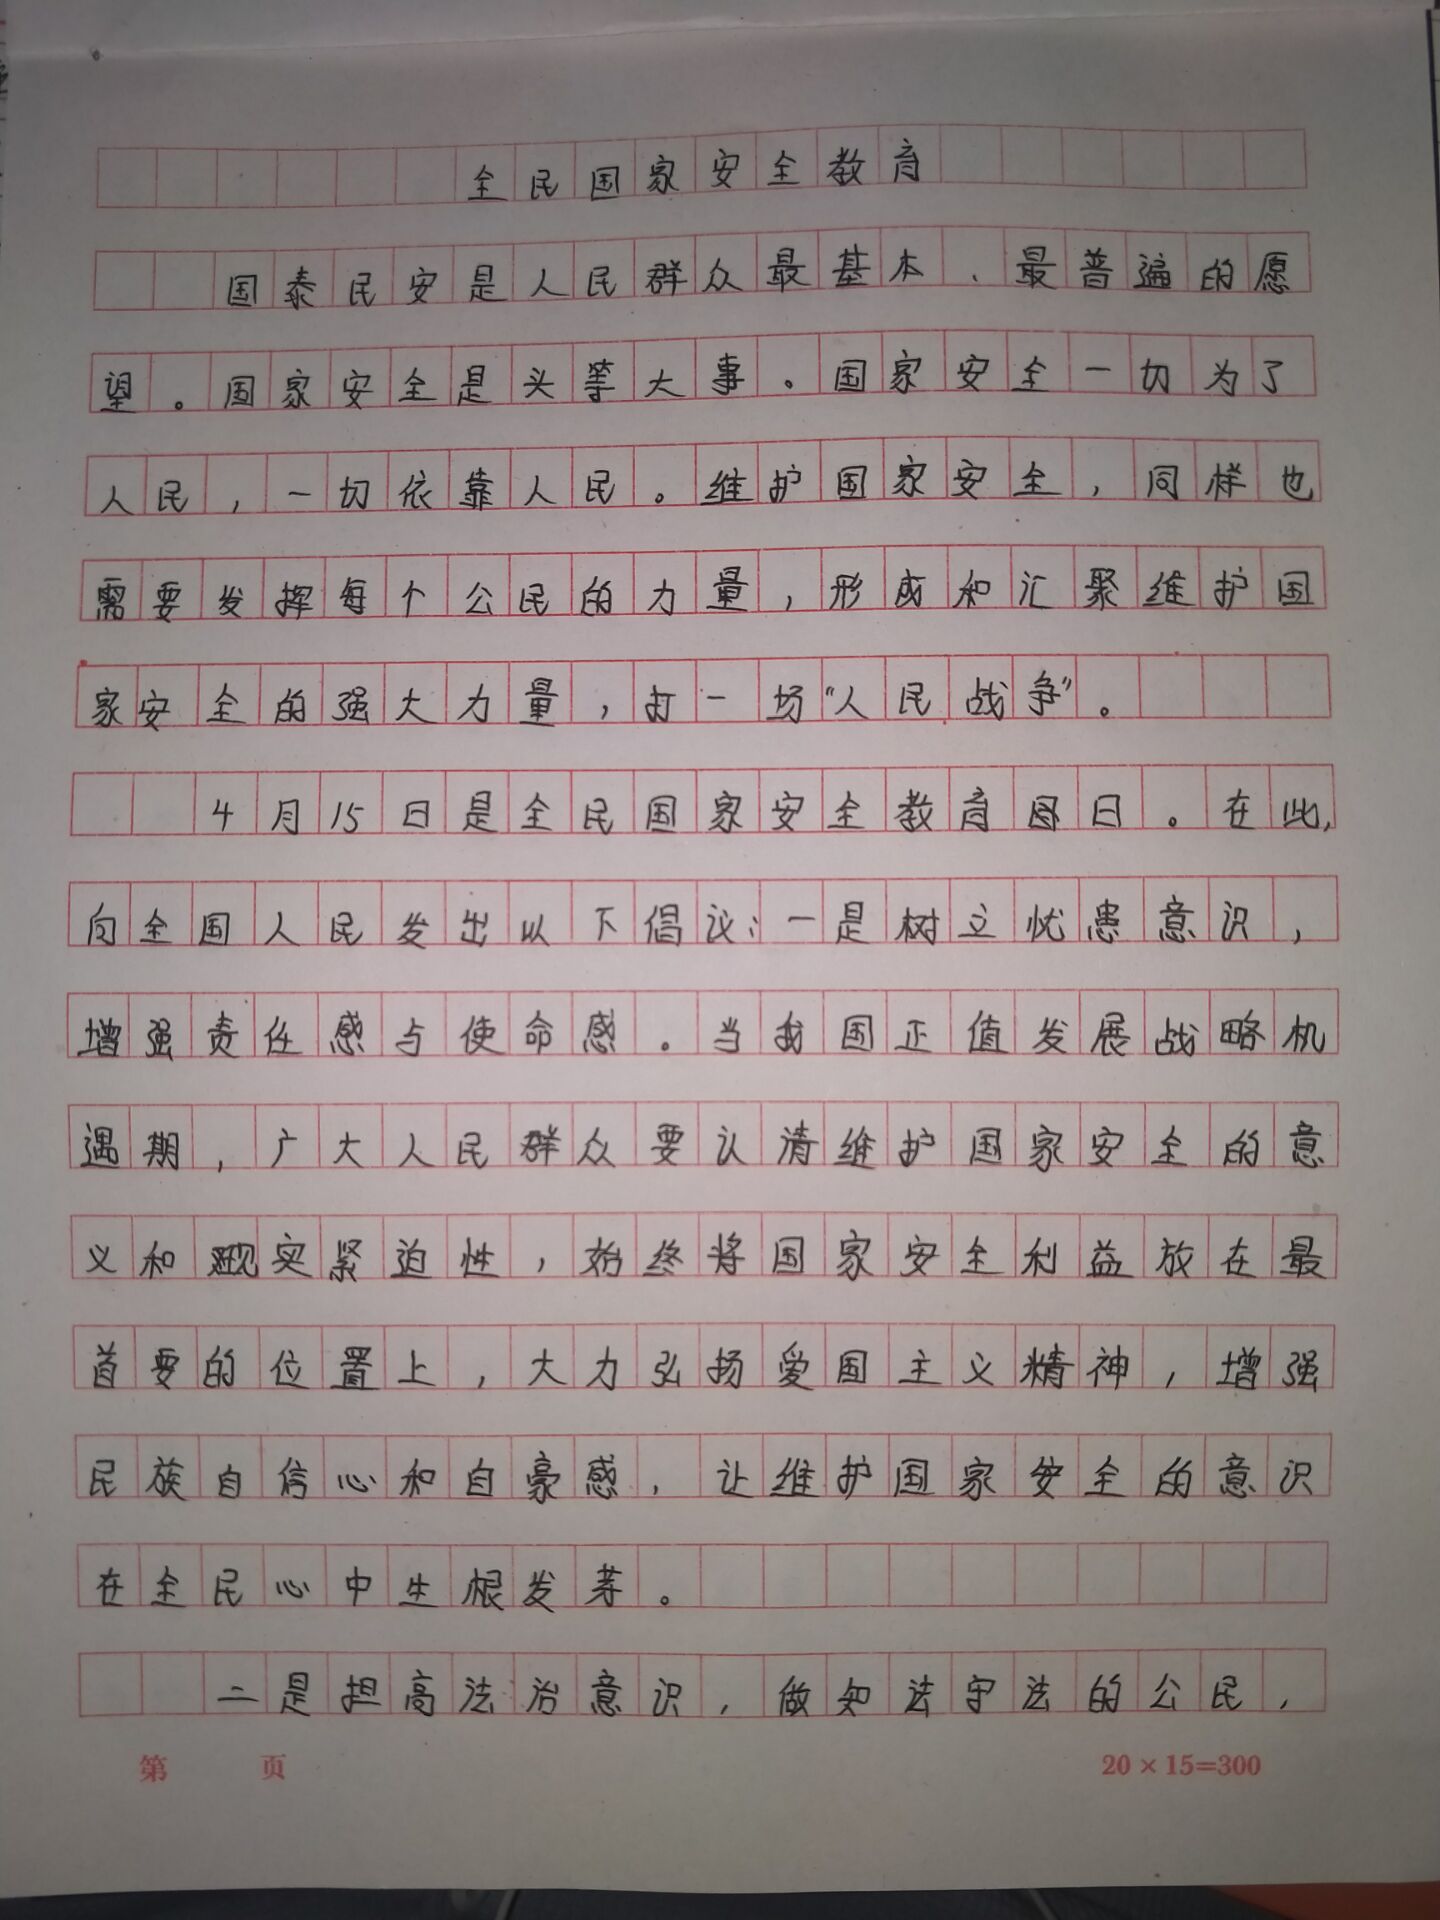 全民国家安全教育
国泰民安是人民群众最基本、最普遍的愿
望。国家安全是头等大事。国家安全一切为了
人民，一切依靠人民。维护国家安全，同样也
需要发挥每个公民的力量，形成和汇聚维护国
家安全的强大力量，打一场“人民战争”。
4月15日是全民国家安全教育日。在此，
向全国人民发出以下倡议：一是树立忧患意识，
增强责任感与使命感。当我国正值发展战略机
遇期，广大人民群众要认清维护国家安全的意
义和现实紧迫性，始终将国家安全利益放在最
首要的位置上，大力弘扬爱国主义精神，增强
民族自信心和自豪感，让维护国家安全的意识
在全民心中生根发芽。
二是担高法治意识，做知法守法的公民，
第 页 20×15=300